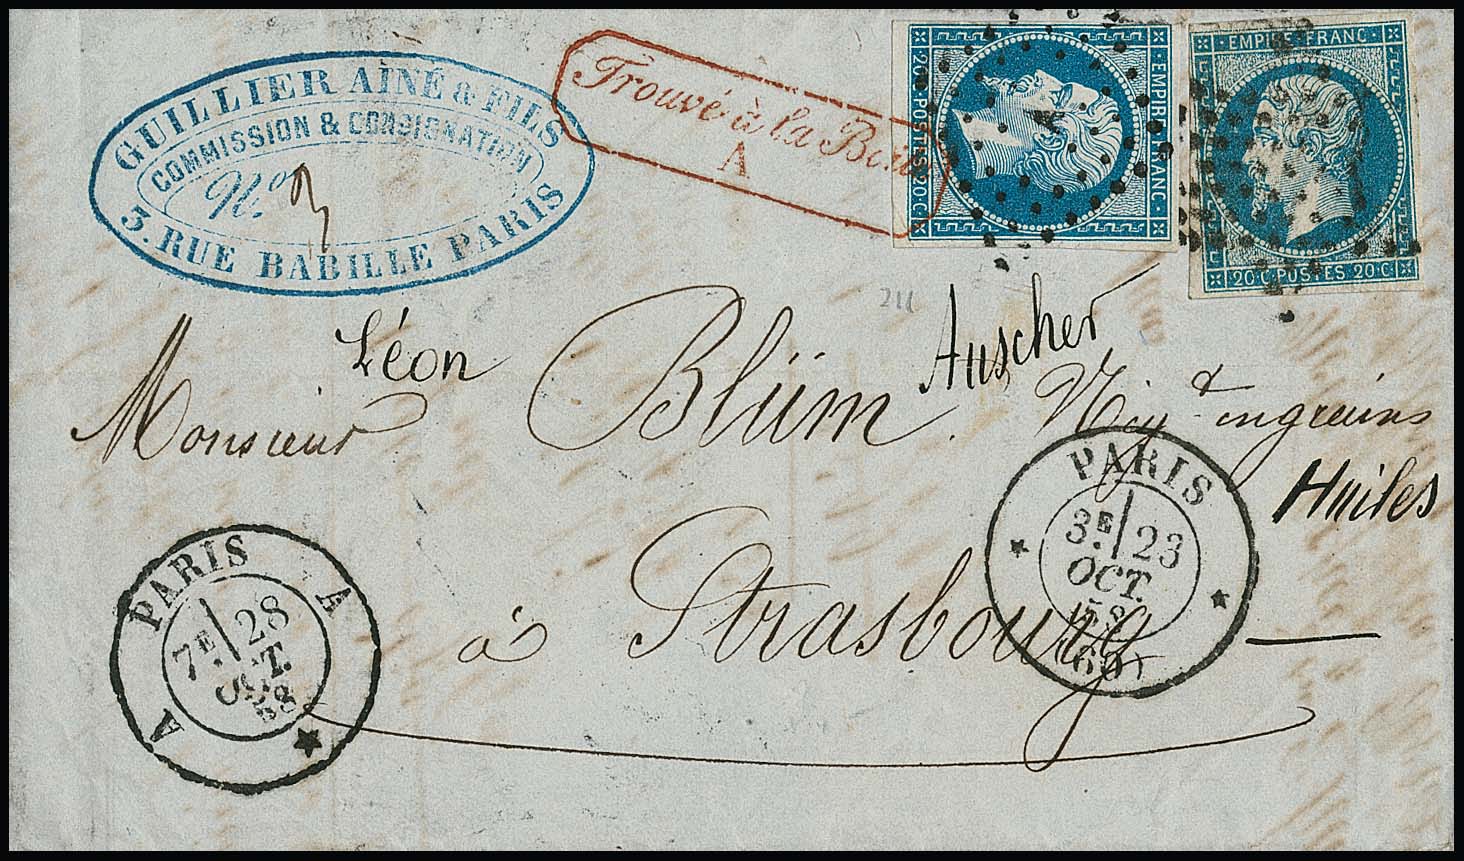 GUILLIER AINÉ & FILS
COMMISSION & CONSIGNATION
No.
3. RUE BABILLE PARIS
Trouvé à la Boîte
A
20 C. POSTES 20 C.
EMPIRE FRANC
EMPIRE FRANC
20 C. POSTES 20 C.
211
Léon Auscher
Monsieur Blüm. &
Huiles
à Strasbourg
PARIS
3E 23
OCT.
58
(60)
PARIS A
7E 28
OCT.
58
A